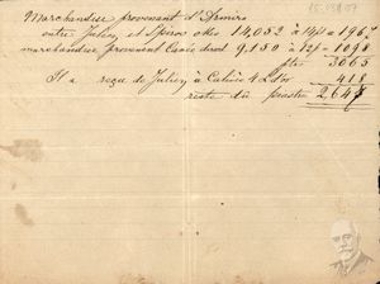 Marchandise provenant d'Armiro
entre Julien et Spiros okes 14,052 à 14p = 1967
marchandise provenant Canée direct 9.150 à 12p = 1098
ptrs 3065
Il a reçu de Julien à Calivès 4 L d'or 418
reste dû piastres 2,647